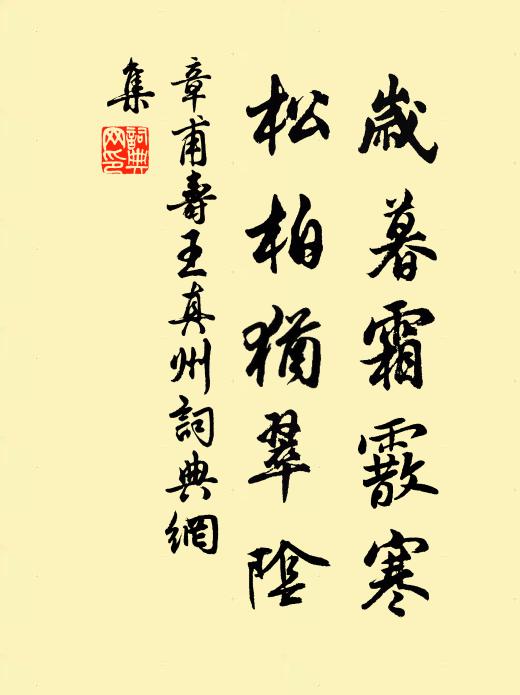 歲暮霜霰寒
松柏猶翠陰
章甫壽王真州詞典網
集
詞典網印